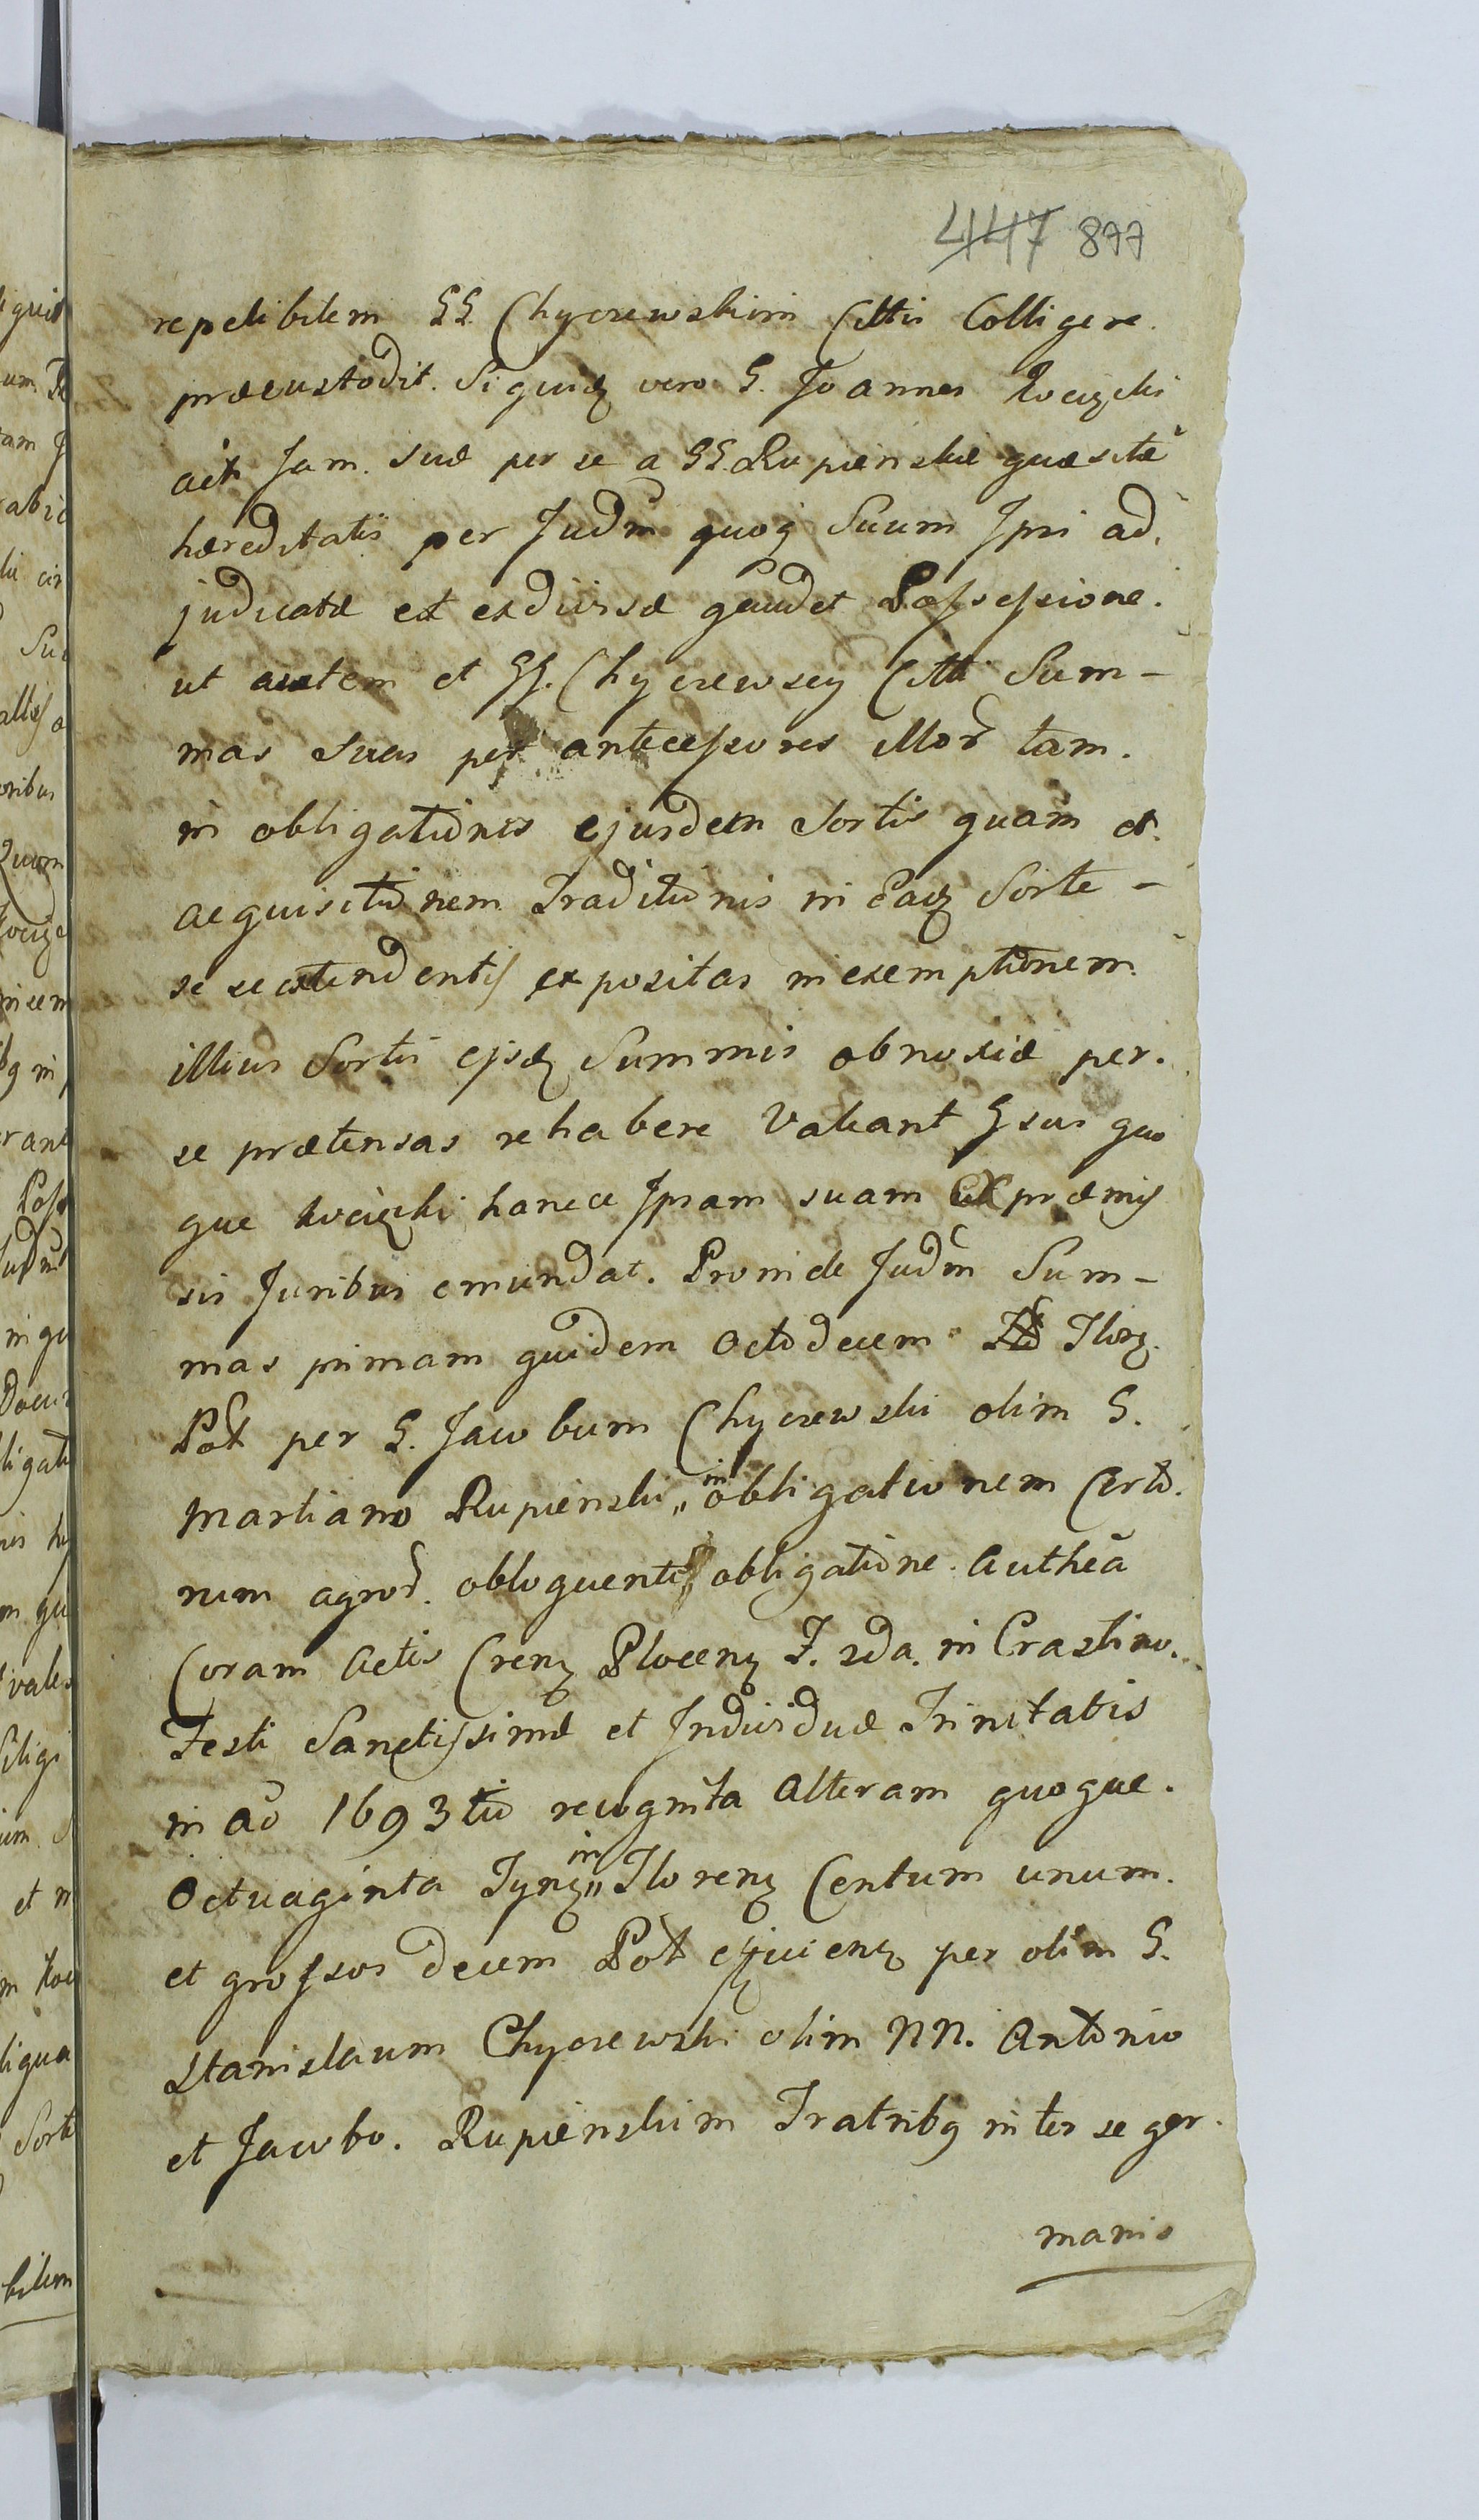 447 877
repetibilem GG. Chyczewskim Cittis Colligere.
præcustodit. Siquidz vero G. Joannes Kocięcki
act Jam. suæ per se a GG. Rupienskie quæsitæ
hæreditatis per Judm quoqz Suum Jpsi ad,
judicatæ et exdivisæ gaudet Possessione.
ut autem et GG. Chyczewscy Citti Sum-
mas suas per antecessores illor tam.
in obligationes ejusdem Sortis quam et.
acquisitionem Traditionis in eadz Sorte -
se se extendentis expositas in exemptionem
illius Sortis ejsdz Summis obnoxiæ per.
se prætensas rehabere Valeant Gsus quo
que Kocięcki hancce Jpsam suam ex præmis
sis Juribus emundat. Proinde Judm Sum-
mas primam quidem Octodecem Florz.
Pol per G. Jacobum Chyczewski olim G.
Martiano Rupienski „ in obligationem Certo.
rum agror. obloquentis obligatione. Authca
Coram Actis Crenz Plocenz F. 2da. in Crastino.
Festi Sanctissimæ et Individuæ Trinitatis
in Ao 1693tio recognita Alteram quoque.
Octuaginta Tynz „ in Florenz Centum unum.
et grossos decem Pol efficienz per olim G.
Stanislaum Chyczewski olim NN. Antonio
et Jacobo. Rupienskim Fratribq inter se ger.
manis